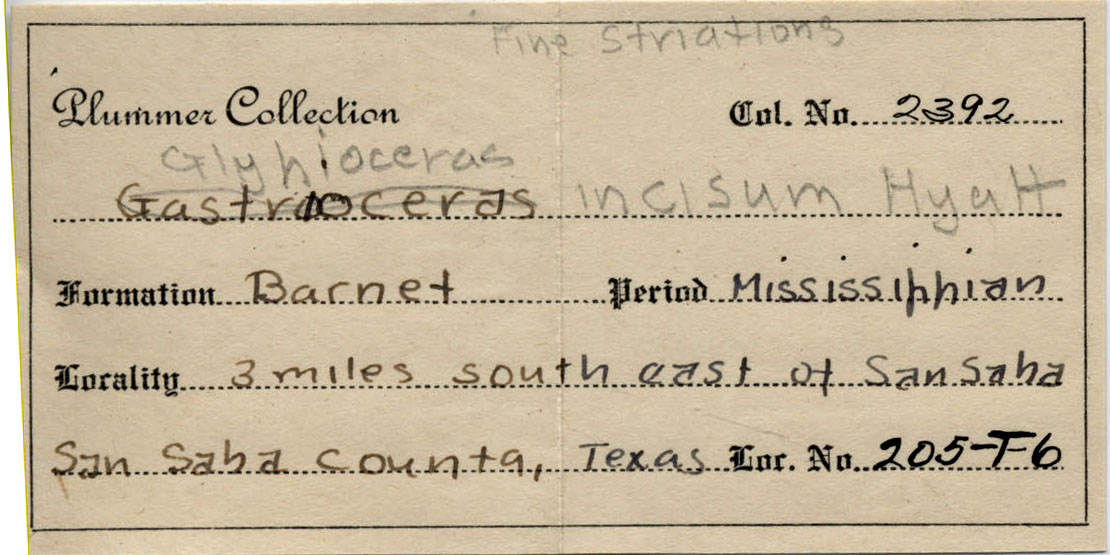 Fine Striations
Plummer Collection Col. No. 2392
Glyhioceras
Gastrioceras incisum Hyatt
Formation Barnet Period Mississippian
Locality 3 miles south east of San Saba
San Saba County, Texas Loc. No. 205-T-6